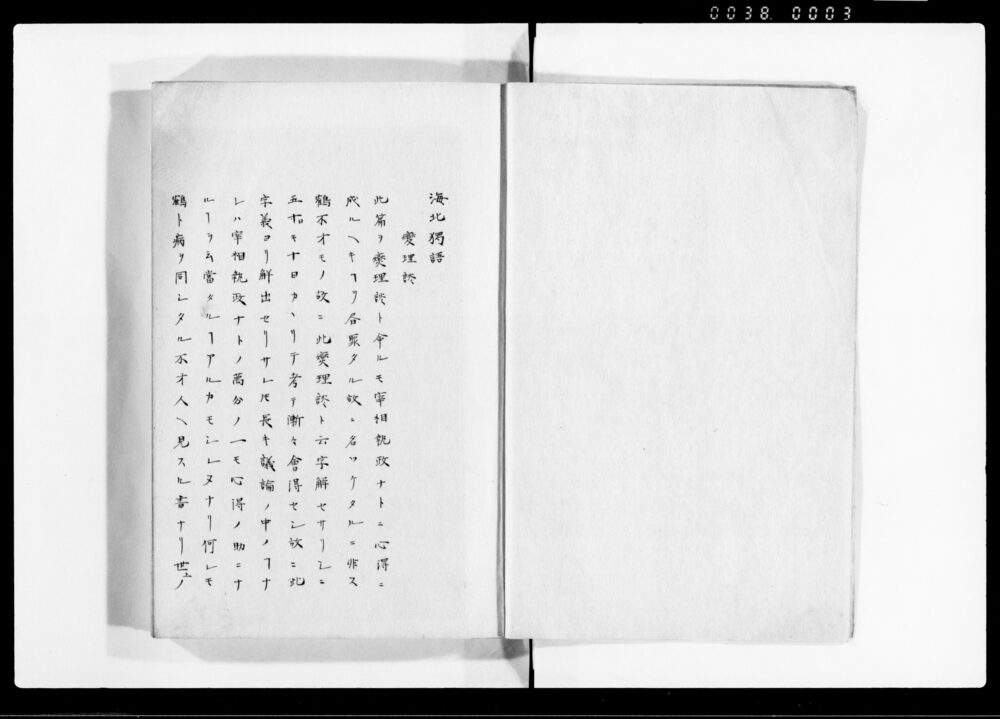 0038. 0003
海北獨語
燮理談
此篇ヲ燮理談ト命ルモ宰相執政ナトニ心得ニ
成ルヘキヿヲ合聚タル故ニ名ツケタルニ非ス
鶴不才モノ故ニ此燮理談ト云字解セサリシニ
五十日モ十日カヽリテ考ヲ漸々會得セシ故ニ此
字義ヨリ解出セリサレ𪜈長キ議論ノ中ノヿナ
レハ宰相執政ナトノ萬分ノ一モ心得ノ助ニナ
ルヿヲ云當タルヿアルカモシレヌナリ何レモ
鶴ト病ヲ同シタル不才人ヘ見スル書ナリ世上ノ